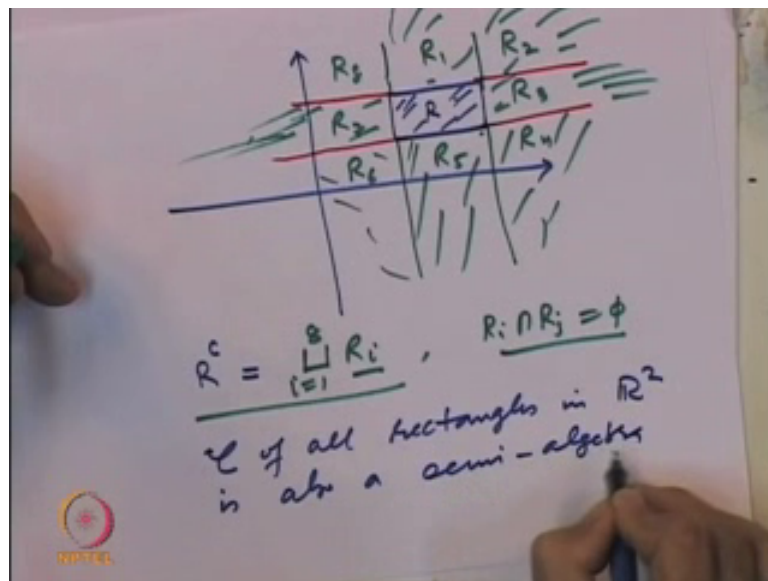 R8 R1 R2
R7 R R3
R6 R5 R4
R^c = ⊔_{i=1}^{8} R_i , R_i ∩ R_j = φ
𝒞 of all rectangles in ℝ^2
is also a semi-algebra
NPTEL